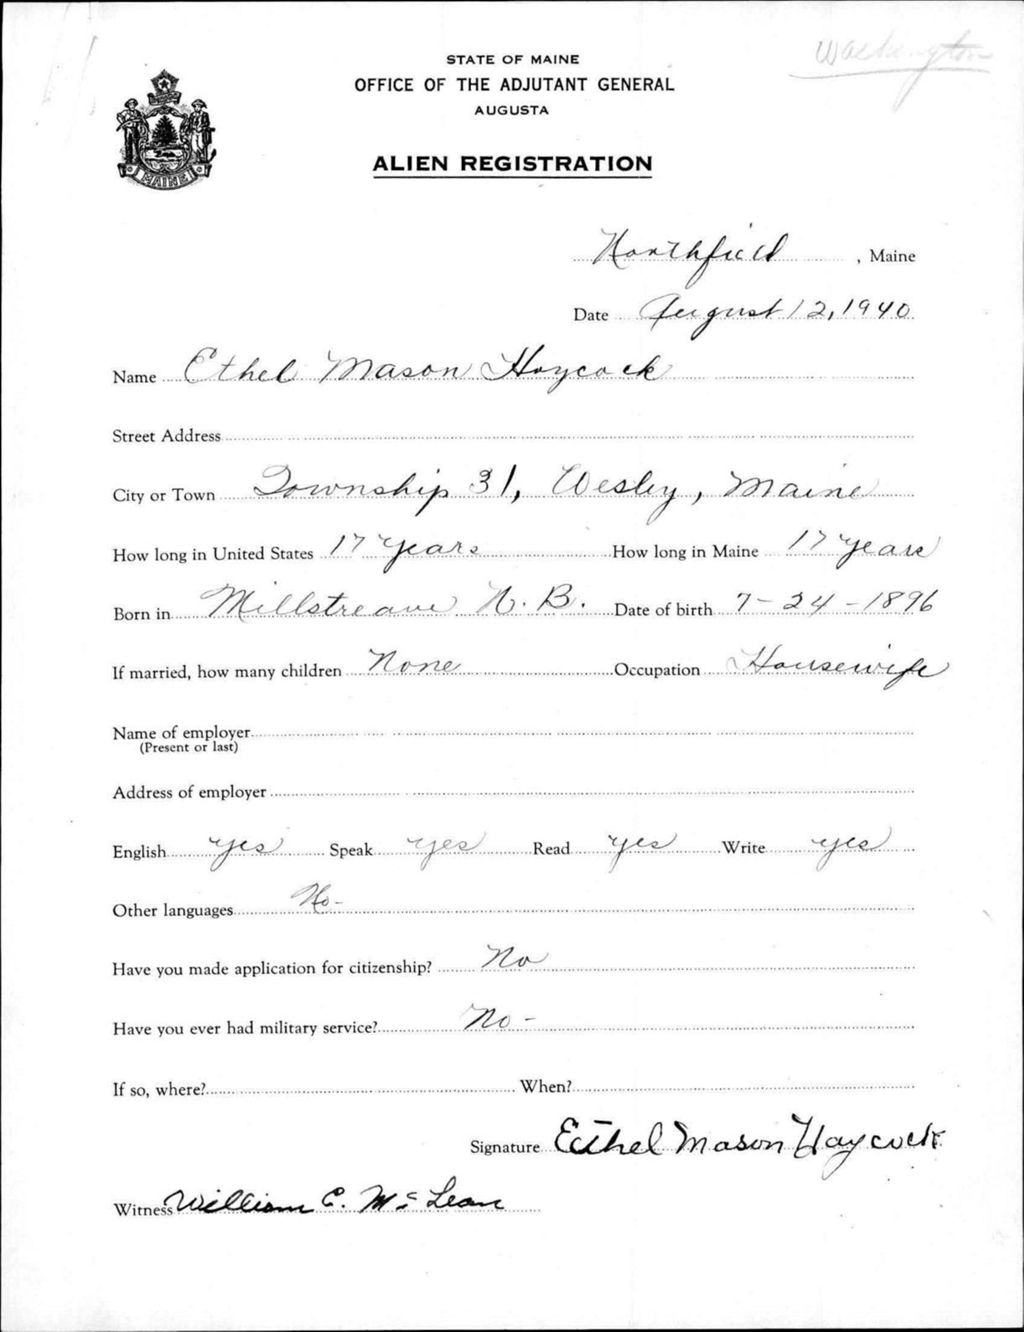 Washington
STATE OF MAINE
OFFICE OF THE ADJUTANT GENERAL
AUGUSTA
ALIEN REGISTRATION
MAINE
Northfield, Maine
Date August 12, 1940
Name Ethel Mason Haycock
Street Address
City or Town Township 31, Wesley, Maine
How long in United States 17 Years How long in Maine 17 Years
Born in Millstreave N. B. Date of birth 7-24-1896
If married, how many children None Occupation Housewife
Name of employer
(Present or last)
Address of employer
English yes Speak yes Read yes Write yes
Other languages No-
Have you made application for citizenship? No
Have you ever had military service? No-
If so, where? When?
Signature Ethel Mason Haycock
Witness William E. McLean